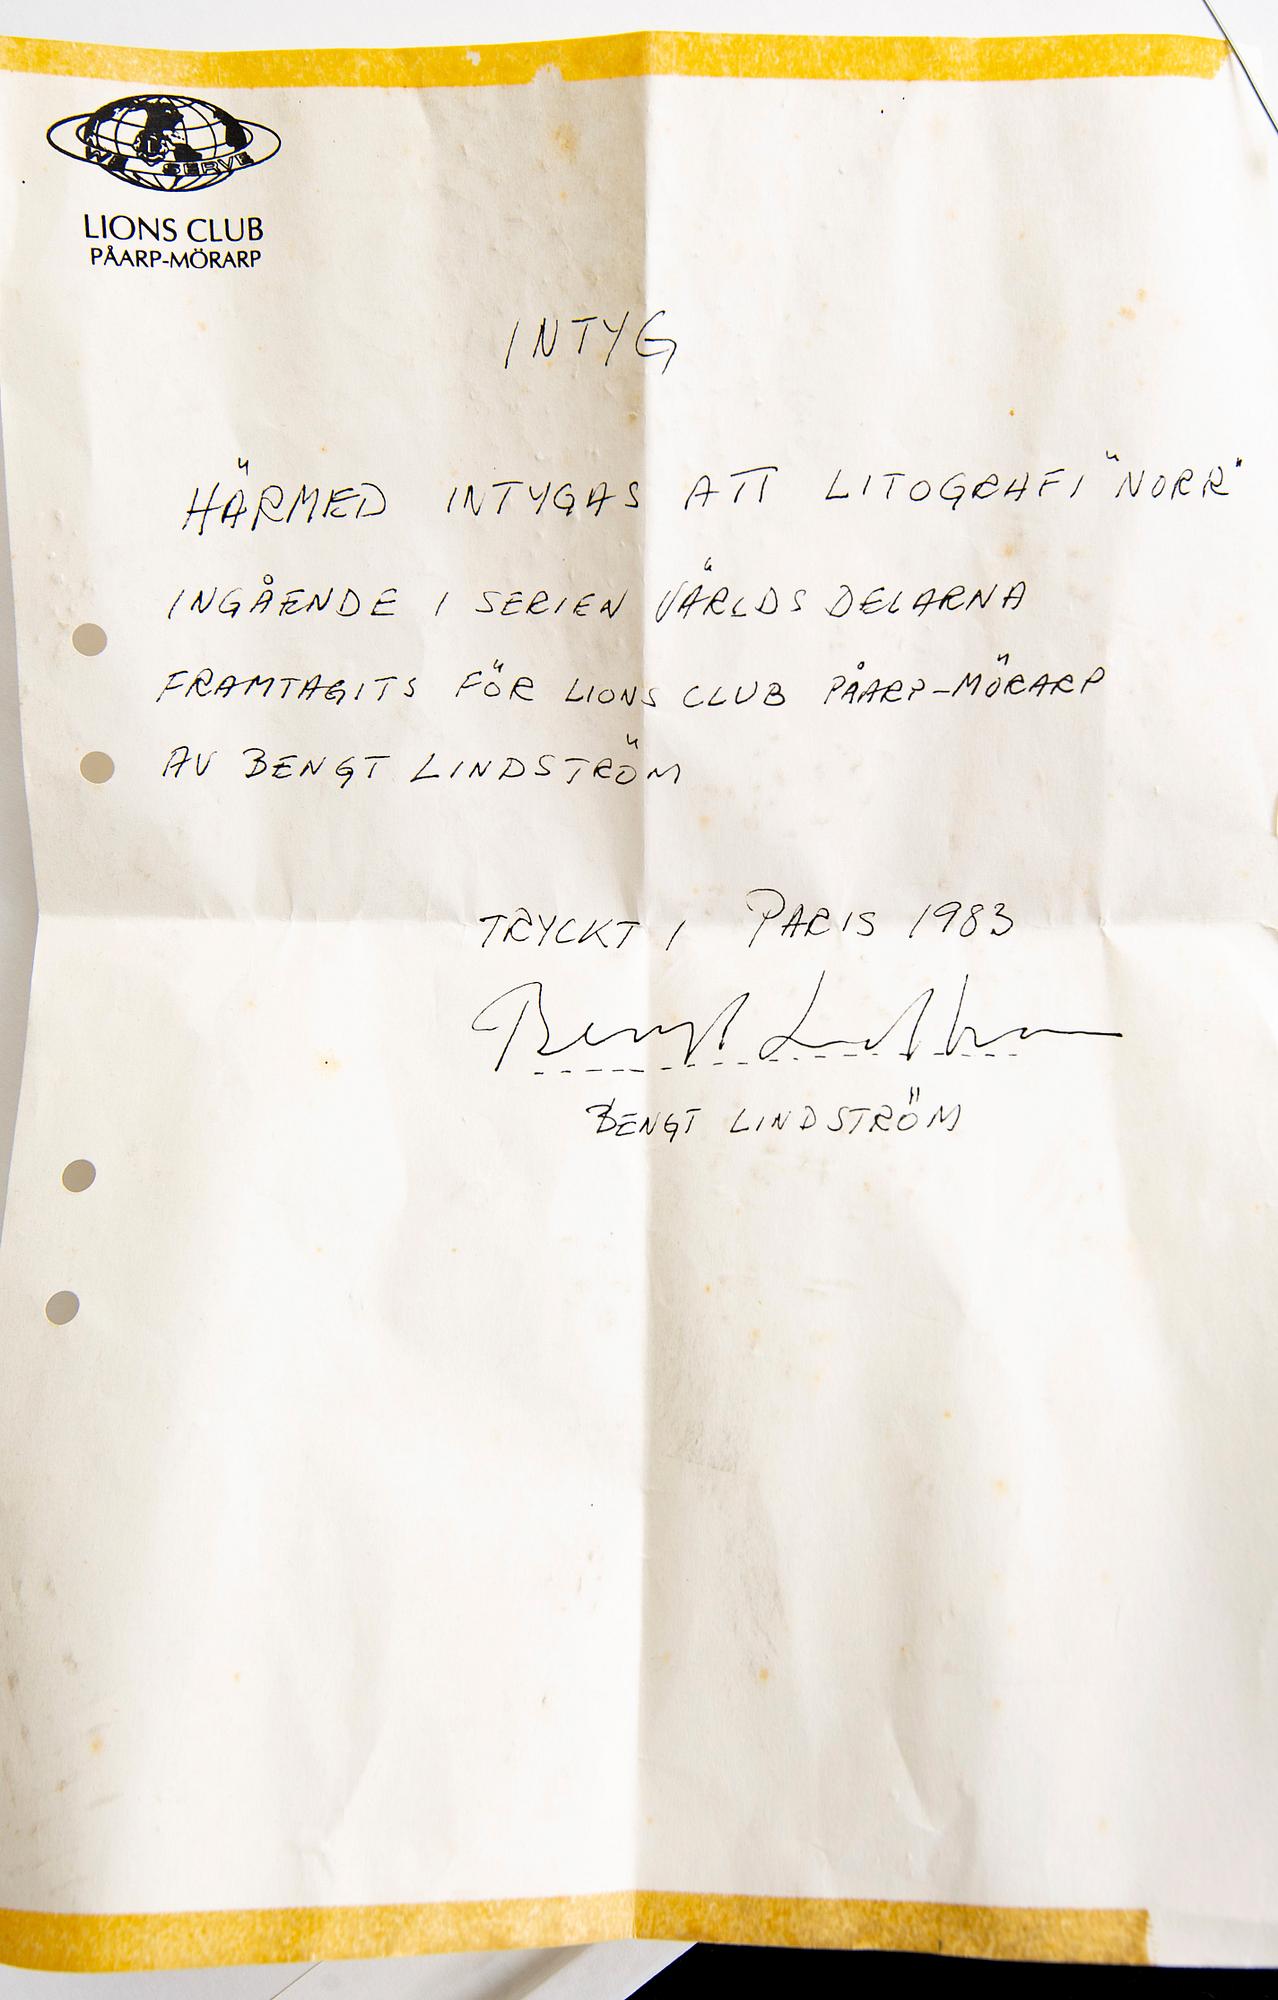 WE SERVE
LIONS CLUB
PÅARP-MÖRARP
INTYG
HÄRMED INTYGAS ATT LITOGRAFI "NORR"
INGÅENDE I SERIEN VÄRLDSDELARNA
FRAMTAGITS FÖR LIONS CLUB PÅARP-MÖRARP
AV BENGT LINDSTRÖM
TRYCKT I PARIS 1983
Bengt Lindström
BENGT LINDSTRÖM